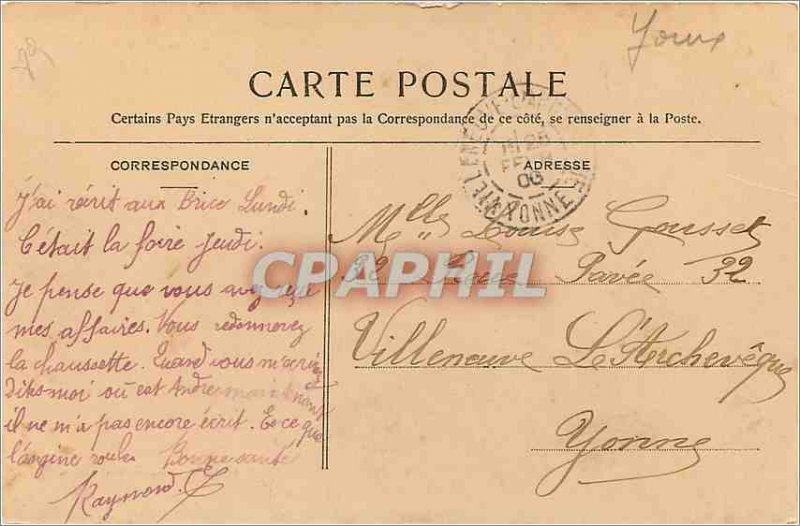 Youx
CARTE POSTALE
Certains Pays Etrangers n'acceptant pas la Correspondance de ce côté, se renseigner à la Poste.
CORRESPONDANCE
J'ai récrit aux Brice Lundi.
C'était la foire Jeudi.
Je pense que vous avez reçu
mes affaires. Vous redonnerez
la chaussette. Quand vous m'écrirez
dites-moi où est André maintenant
il ne m'a pas encore écrit. Est ce que
l'angine roule. Bonne santé
Raymond.
ADRESSE
Melle Louise Gousset
32 Pavée 32
Villeneuve L'Archevêque
Yonne
25
06
YONNE
CPAPHIL